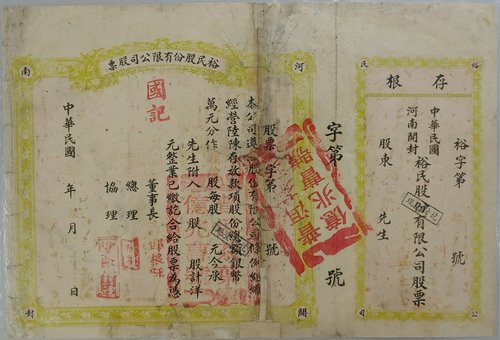 裕民股份有限公司股票
河南開封
國記
股票 字第 號
本公司遵照股份有限公司條例組織
經營陸陳存放款項股份總額銀幣
萬元分作 股每股 元今承
先生附入 股 股計洋
元整業已繳訖合給股票為憑
董事長
總理
協理
中華民國 年 月 日
字第 號
裕民公司
存根
裕字第 號
中華民國
河南開封裕民股份有限公司股票
股東 先生